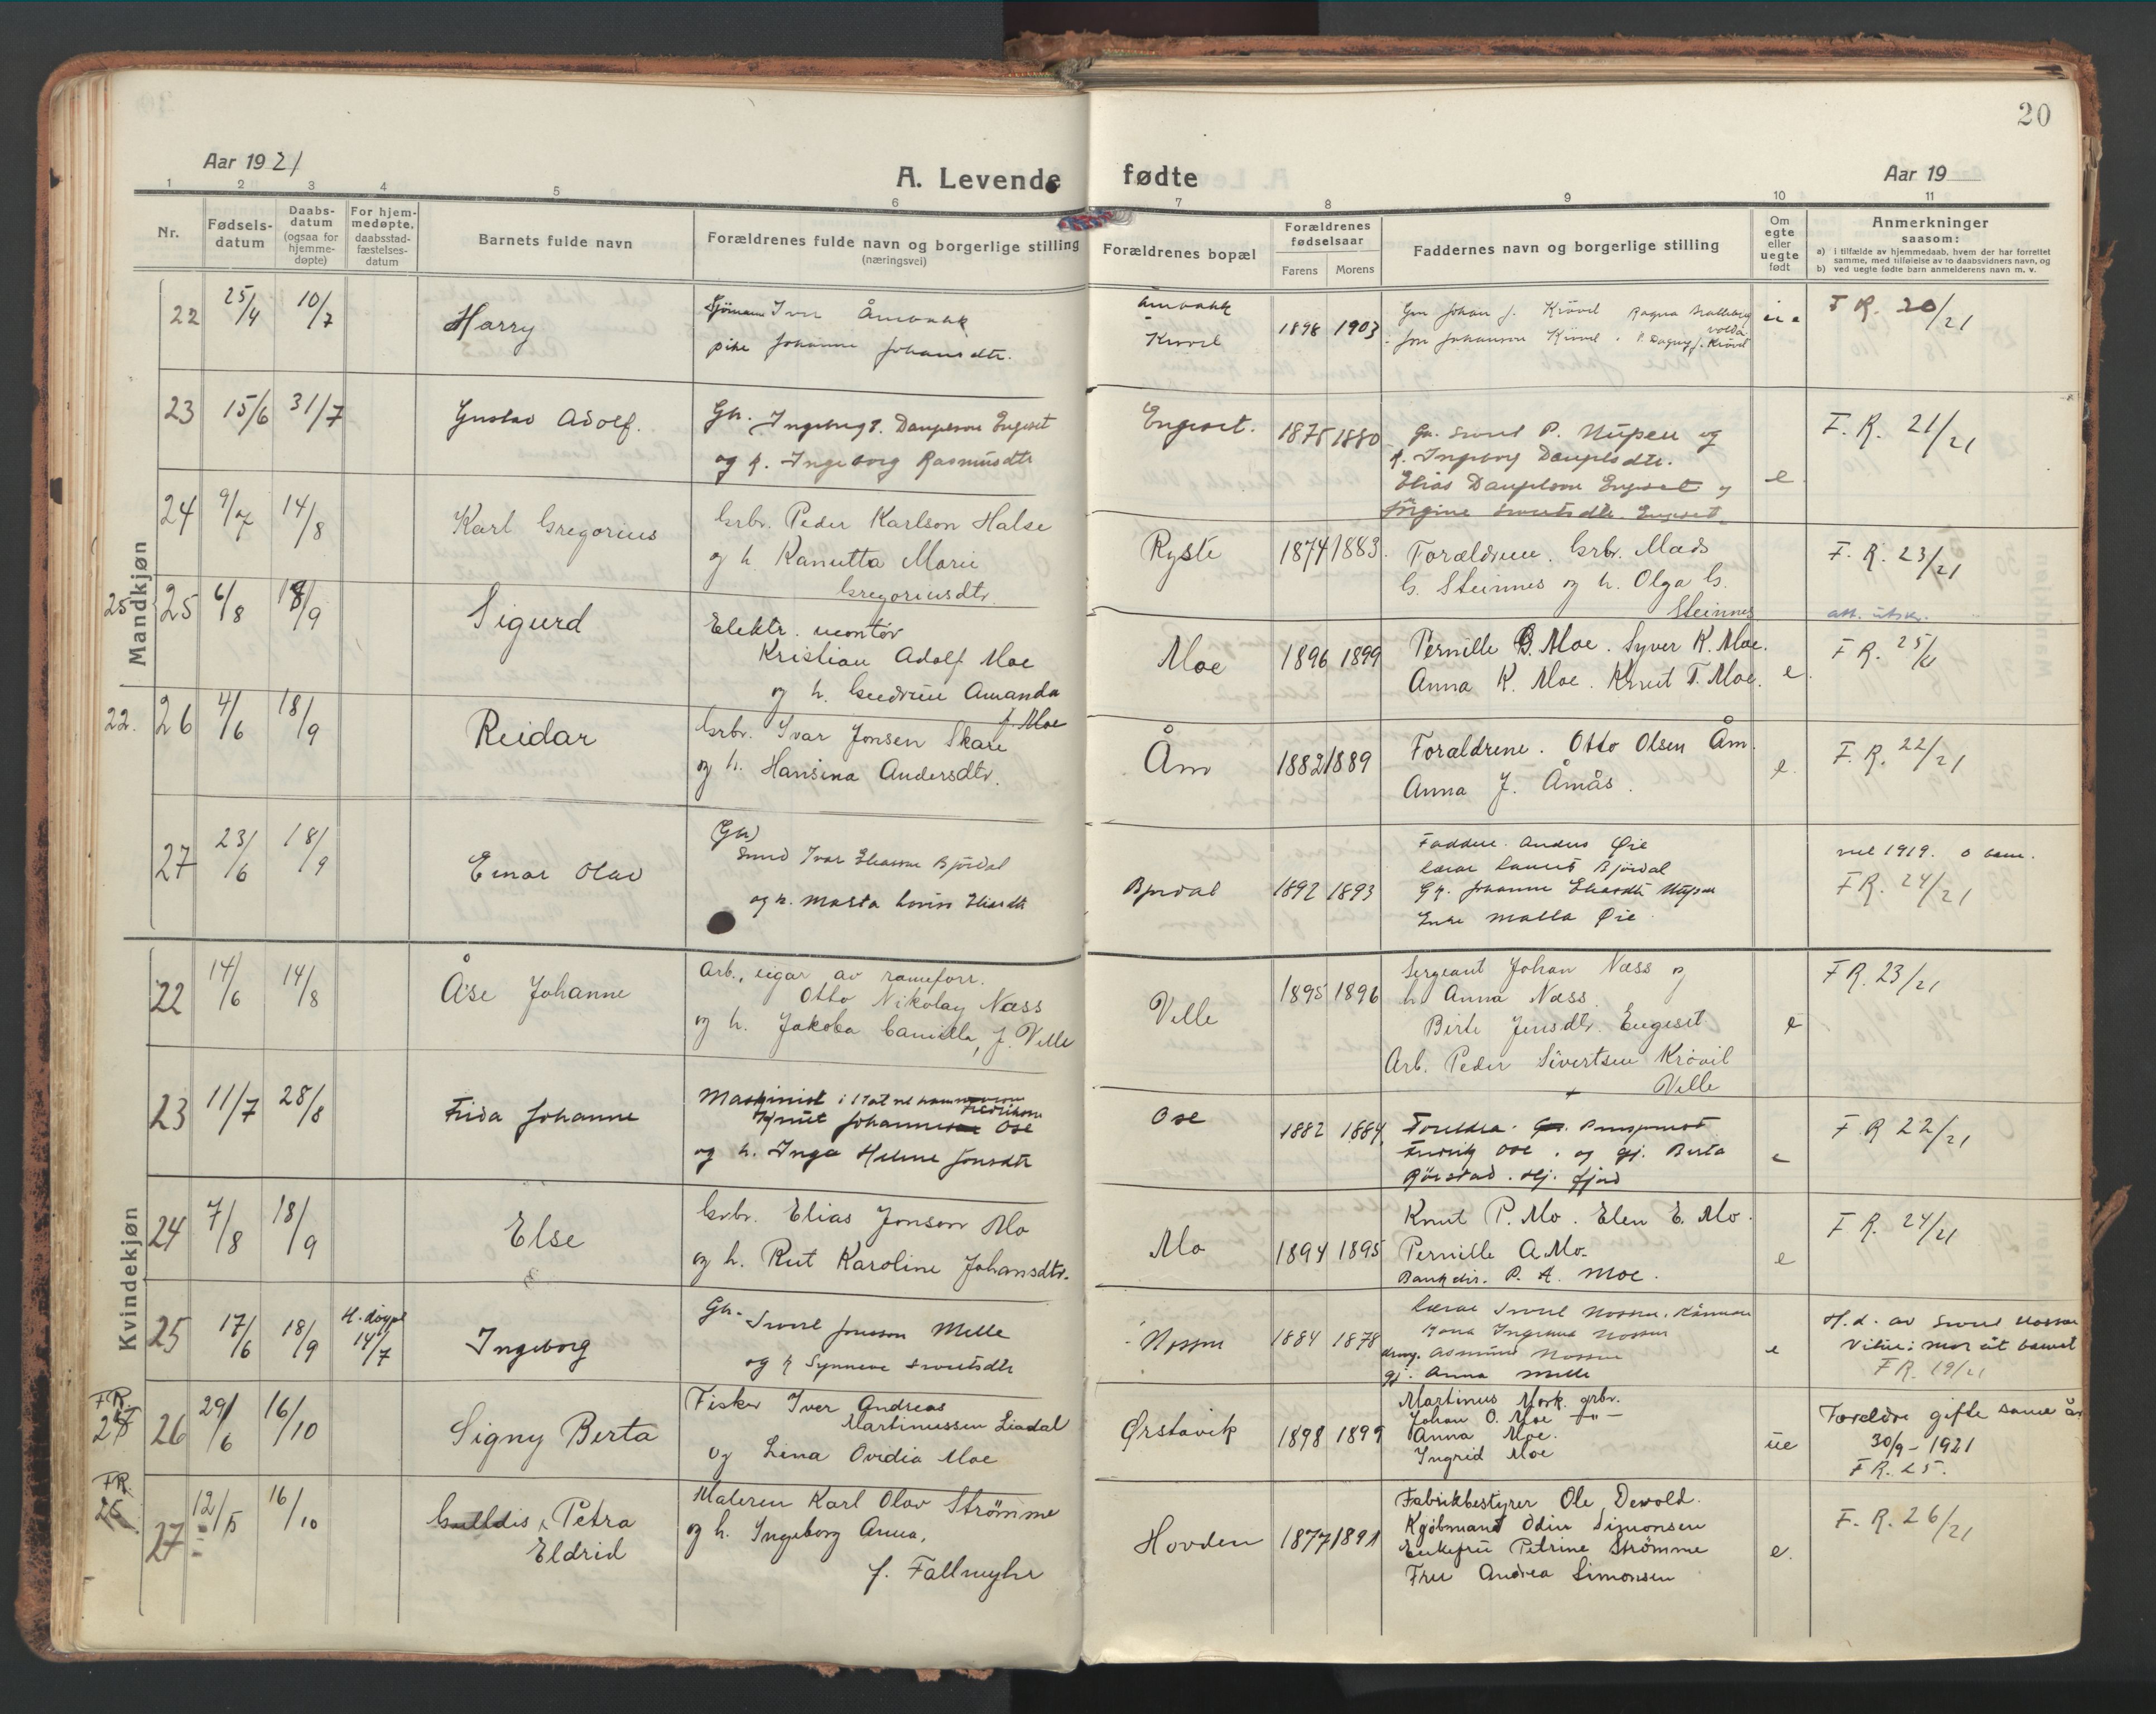 20
Aar 1921
A. Levende fødte
Aar 19
1 2 3 4 5 6 7 8 9 10 11
Nr.
Fødsels-
datum
Daabs-
datum
(ogsaa for
hjemme-
døpte)
For hjem-
medøpte,
daabsstad-
fæstelses-
datum
Barnets fulde navn
Forældrenes fulde navn og borgerlige stilling
(næringsvei)
Forældrenes bopæl
Forældrenes
fødselsaar
Farens Morens
Faddernes navn og borgerlige stilling
Om
egte
eller
uegte
født
Anmerkninger
saasom:
a) i tilfælde av hjemmedaab, hvem der har forrettet
samme, med tilføielse av to daabsvidners navn, og
b) ved uegte fødte barn anmelderens navn m. v.
Mandkjøn
22 25/4 10/7 Harry
Sjömann Iver Åmbakk
pike Johanne Johansdtr.
Åmbakk
Krøvel
1898 1903
F. R. 20/21
23 15/6 31/7 Gustav Adolf.
og k. Ingeborg Rasmusdtr
Engeset.
1875 1880
Gr. Sivert P. Hupen og
k. Ingeborg
e
F. R. 21/21
24 9/7 14/8 Karl Gregorius
Grbr. Peder Karlson Halse
og h. Kanutta Marie
Gregoriusdtr.
Ryste
1874 1883.
Forældrene. Grbr. Mads
G. Steinnes og h. Olga G.
Steinnes
F. R. 23/21
25 25 6/8 18/9 Sigurd
Elektr. montør
Kristian Adolf Moe
og h. Gudrun Amanda
f. Moe
Moe
1896 1899
Pernille B. Moe. Syver K. Moe.
Anna K. Moe. Knut T. Moe.
e.
att. utskr.
F R. 25/21
22. 26 4/6 18/9 Reidar
Grbr. Ivar Jonsen Skare
og h. Hansina Andersdtr.
Åm
1882 1889
Forældrene. Otto Olsen Åm.
Anna J. Åmås.
e.
F. R. 22/21
27 23/6 18/9 Einar Olav
(Gr)
Smed Ivar Eliassen Bjørdal
og h. Marta Lovise Eliasdtr
Bjørdal
1892 1893
Faddere. Anders Øie
Lærar Laurits Bjørdal
Enke Malla Øie
1919.
F R. 24/21
Kvindekjøn
22 14/6 14/8 Åse Johanne
Arb., eigar av
Otto Nikolay Næss
og h. Jakoba Camilla, f. Velle
Velle
1895 1896
Sergeant Johan Næss og
h. Anna Næss.
Birte Jensdtr. Engeset
Arb. Peder Sivertsen Krøvil
Velle
e
F R. 23/21
23 11/7 28/8 Frida Johanne
Maskinist i
Knut Johannesen Ose
og h. Inga Helene Jonsdtr
Ose
1882 1884
Fredrik Ose. og gj. Berta
e
F. R 22/21
24 7/8 18/9 Else
Grbr. Elias Jonson Mo
og h. Rut Karoline Johansdtr.
Mo
1894 1895
Knut P. Mo. Elen E. Mo.
Pernille A. Mo.
Bankdir. P. A. Moe.
e
F R. 24/21
25 17/6 18/9 H. døypt 14/7 Ingeborg
Gr. Sivert Jonsson Melle
og k Synneve Sivertsdtr
1884 1878
gj. Anna Melle
e
H.d. av Sivert
Vitne: mor åt barnet
F R. 19/21
FR.
26 29/6 16/10 Signy Berta
Fisker Iver Andreas
Martinussen Liadal
og Lina Ovidia Moe
Ørstavik
1898 1899
Martinus Mork. grbr.
Johan O. Moe —"—
Anna Moe.
Ingrid Moe
ue
Foreldre gifte same år
30/9 - 1921
F R. 25.
FR.
26
27 12/5 16/10 Gulldis, Petra
Eldrid
Maleren Karl Olav Strømme
og h. Ingeborg Anna,
f. Fallmyhr
Hovden
1877 1891
Fabrikbestyrer Ole Devold.
Kjøbmand Odin Simonsen
Enkefru Petrine Strømme
Fru Andrea Simonsen
e.
F. R. 26/21